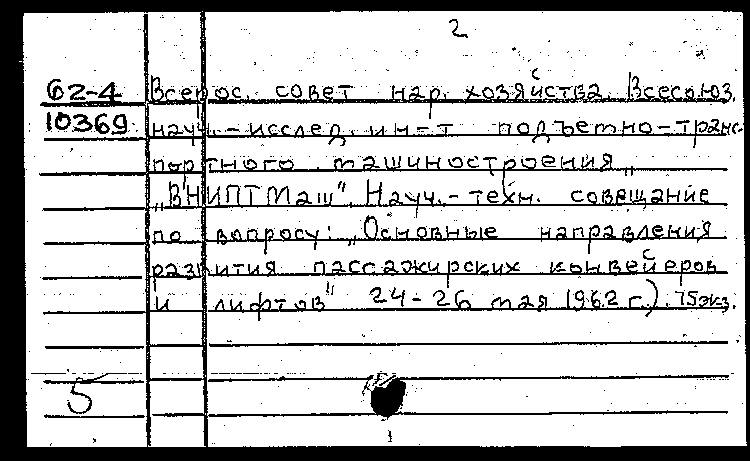 2
62-4 Всерос. совет нар. хозяйства. Всесоюз.
10369 науч.-исслед. ин-т подъемно-транс-
портного машиностроения „
„ВНИПТМаш". Науч.-техн. совещание
по вопросу: „Основные направления
развития пассажирских конвейеров
и лифтов" 24-26 мая 1962 г.). 75экз.
5